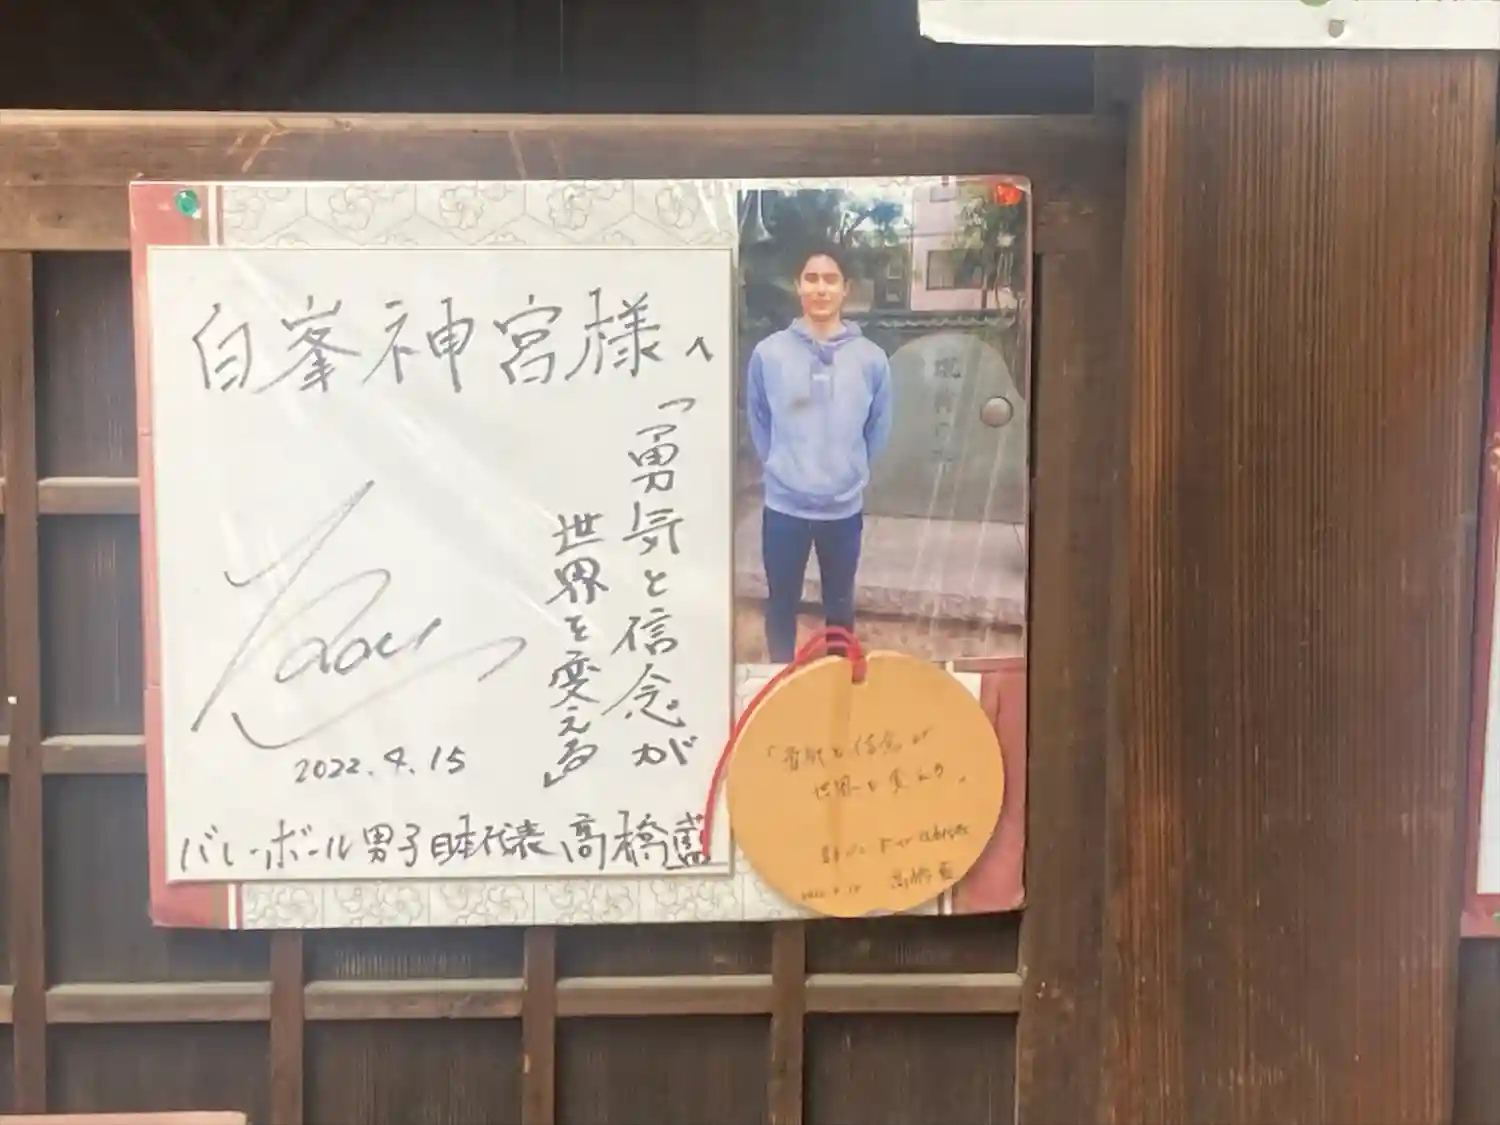 白峯神宮様へ
「勇気と信念が
世界を変える」
Ran
2022.4.15
バレーボール男子日本代表 髙橋藍
世界を変える」
2022.4.15 髙橋藍